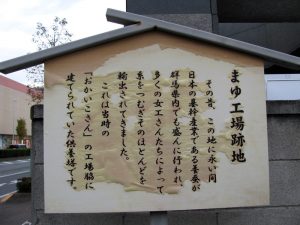 まゆ工場跡地
その昔、この地に永い間
日本の基幹産業である養蚕が
群馬県内でも盛んに行われ、
多くの女工さんたちによって
糸をつむぎそのほとんどを
輸出されてきました。
これは当時の
「おかいこさん」の工場脇に
建てられていた供養塔です。